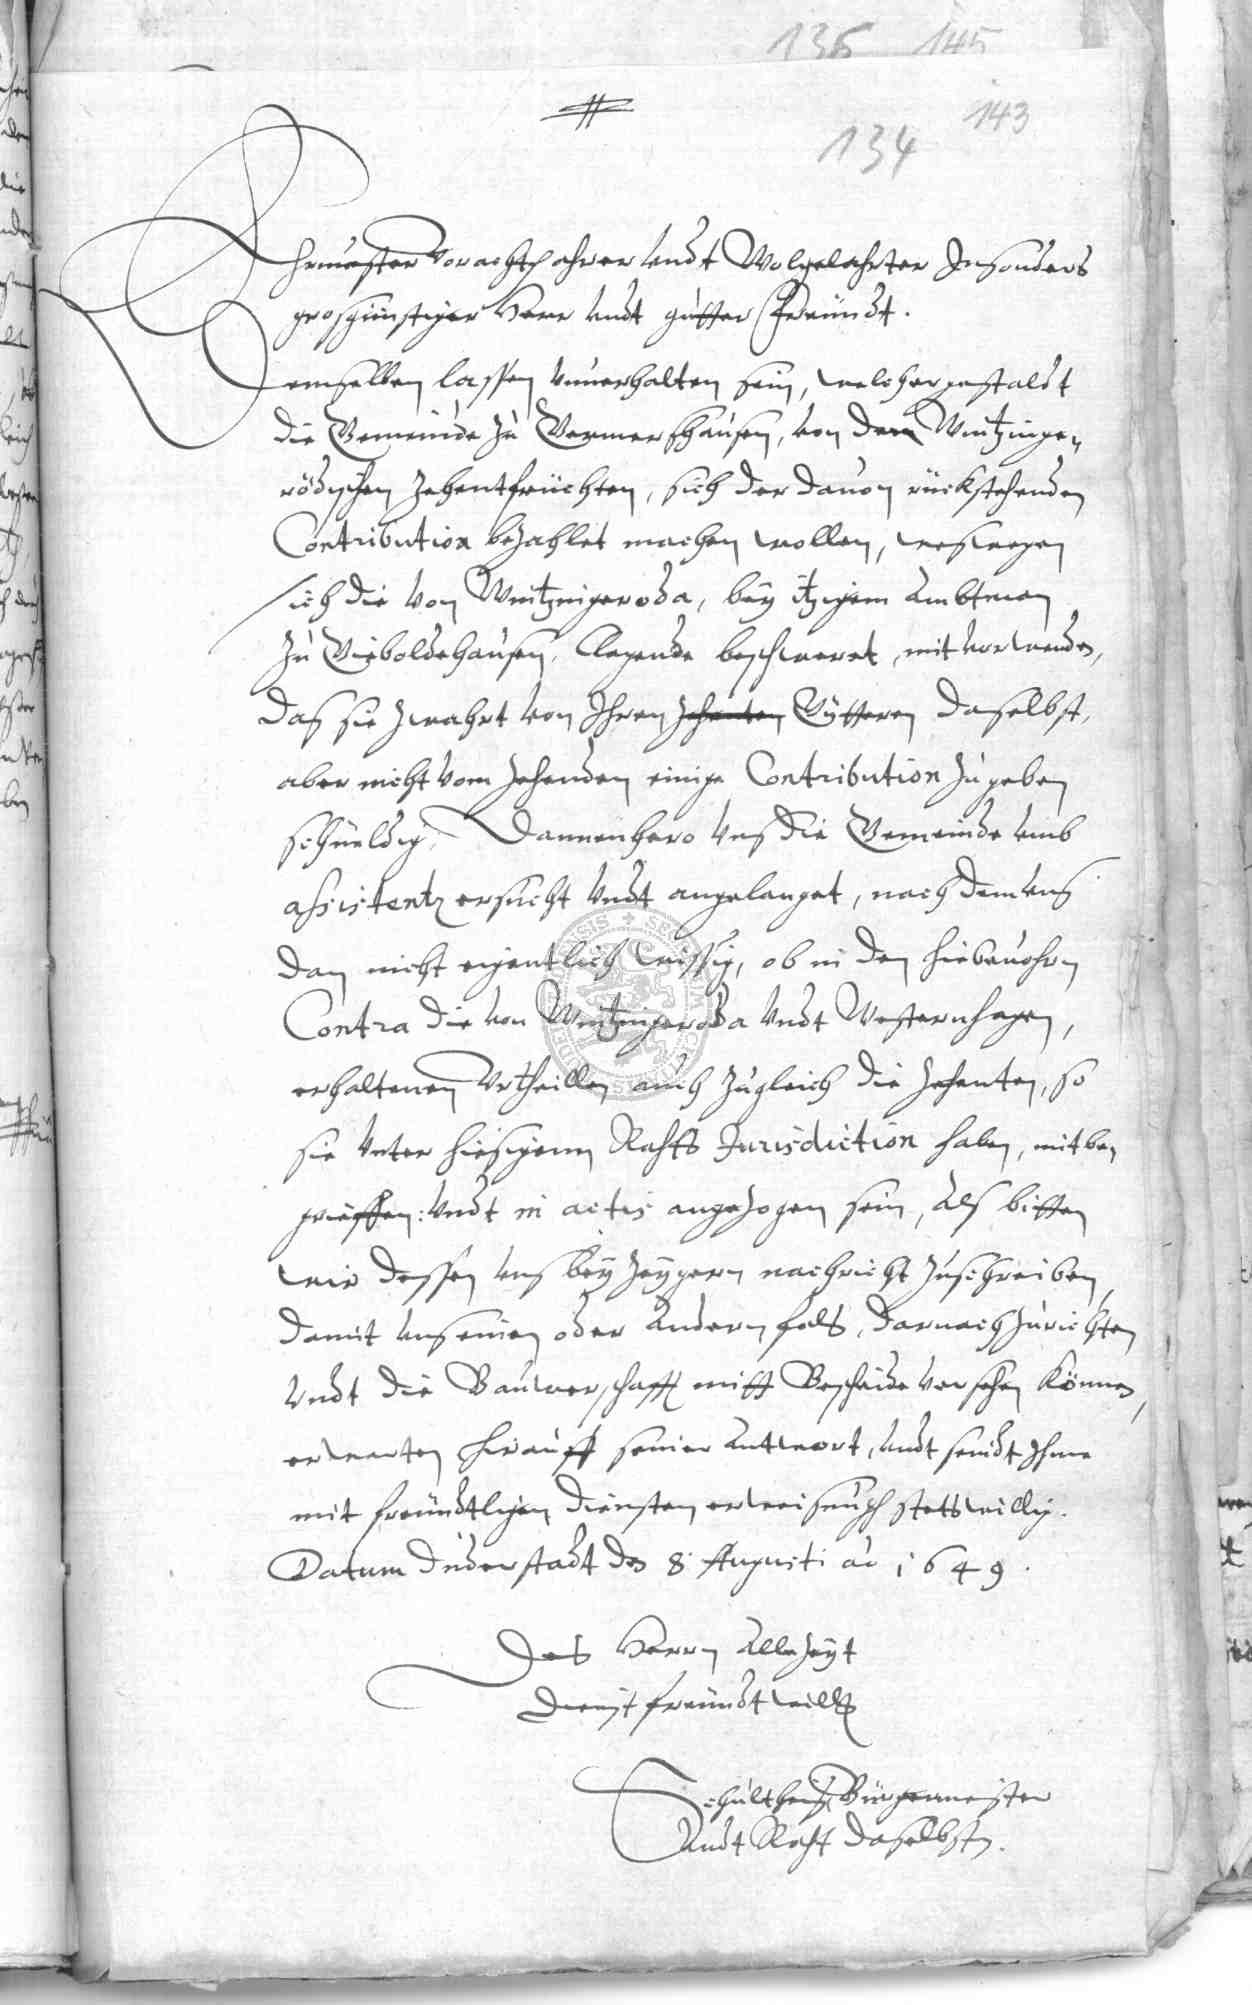 136 145
143
134
Ehrnuester Vorachtb ahrer undt Wolgelahrter Insonders
grosgünstiger Herr undt gutter Freündt.
Demselben lassen unuerhalten sein, welchergestaldt
die Gemeinde zu Germershausen, von den Wintzinge„
rödischen Zehentfrüchten, sich der dauon rückstehenden
Contribution bezahlet machen wollen, weswegen
sich die von Wintzingeroda, bey itzigem Ambtman
zu Gieboldehausen, clagende beschweret, mit vorwenden,
das sie zwahrt von Ihren Zehenten Gütteren daselbst,
aber nicht vom Zehenden einige Contribution zu geben
schüeldig, Dannenhero uns die Gemeinde umb
assistentz ersucht undt angelanget, nach dem uns
dan nicht eigentlich wissig, ob in den hiebeuohrn
Contra die von Wintzingeroda undt Westernhagen,
erhaltenen Urtheillen auch zugleich die Zehenten, so
sie unter hiesigem Rahts Jurisdiction haben, mitbe„
grieffen: undt in actis angezogen sein, Als bitten
wir dessen uns bey Zeygern nachricht zuschreiben,
damit uns einen oder andern fals, darnach zurichten
undt die Baurschafft mitt Bescheide versehen können,
erwarten hirauff seiner Antwort, undt seindt Ihme
mit freündtligen diensten erweisungh stets willig.
Datum Duderstadt den 8 Augusti ao 1649.
Des Herrn Allezeyt
dienst freündtwillig
Schultheis, Bürgermeister
undt Raht daselbsten.